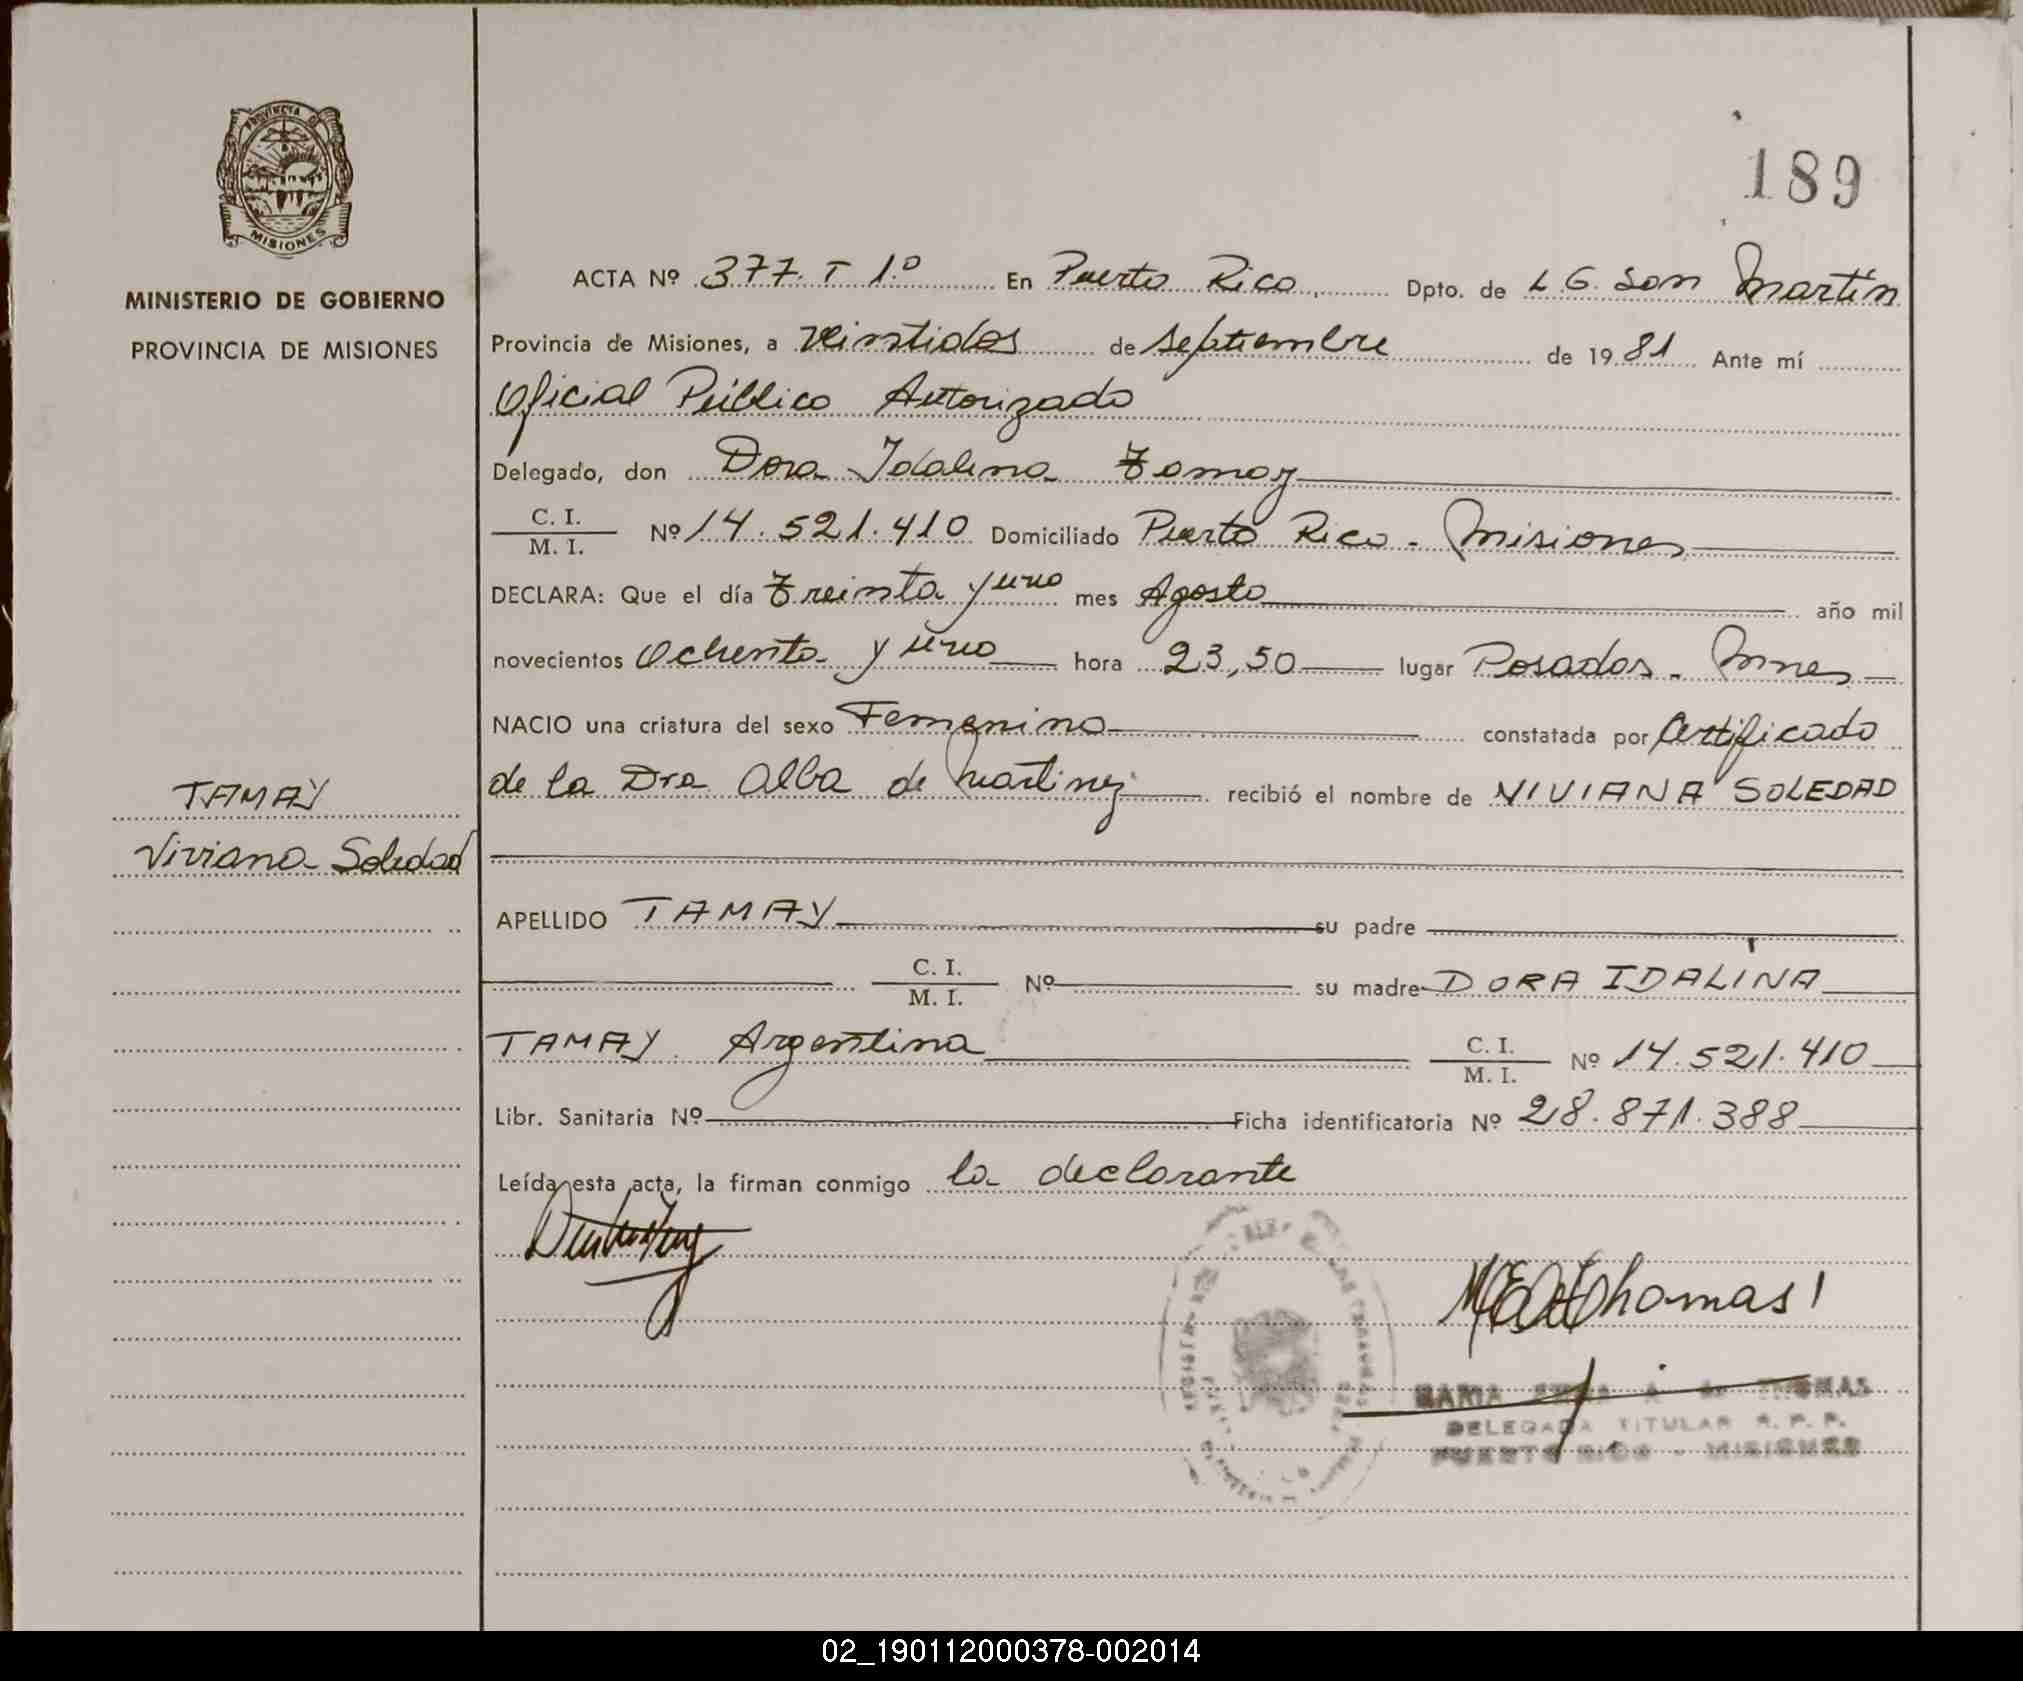 PROVINCIA DE
MISIONES
MINISTERIO DE GOBIERNO
PROVINCIA DE MISIONES
TAMAY
Viviana Soledad
189
ACTA Nº 377. T 1.º En Puerto Rico. Dpto. de L G. San Martín
Provincia de Misiones, a veintidos de septiembre de 1981 Ante mí
Oficial Público Autorizado
Delegado, don Dora Idalina Tamay
C. I. / M. I. Nº 14.521.410 Domiciliado Puerto Rico - Misiones
DECLARA: Que el día Treinta y uno mes Agosto año mil
novecientos Ochenta y uno hora 23,50 lugar Posadas - Mnes
NACIO una criatura del sexo Femenino constatada por Certificado
de la Dra Alba de Martinez recibió el nombre de VIVIANA SOLEDAD
APELLIDO TAMAY su padre
C. I. / M. I. Nº su madre DORA IDALINA
TAMAY. Argentina C. I. / M. I. Nº 14.521.410
Libr. Sanitaria Nº Ficha identificatoria Nº 28.871.388
Leída esta acta, la firman conmigo la declarante
Thomas
MARIA A. de THOMAS
DELEGADA TITULAR R. P. P.
PUERTO RICO - MISIONES
02_190112000378-002014